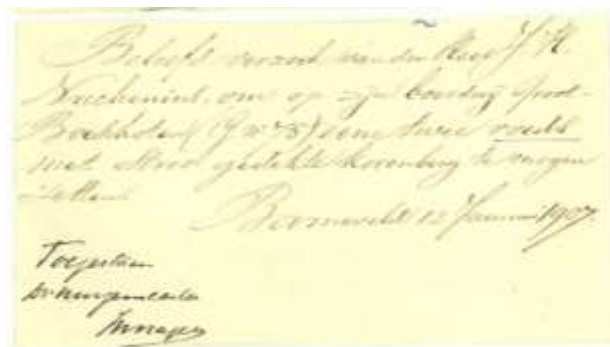 Betreft verzoek van den Heer J. H.
om op zijn boerderij Groot-
Bochholt (G no 8) een twee roeden
met stroo gedekte korenberg te mogen
zetten.
Barneveld 12 Januari 1907.
Toegestaan
de burgemeester